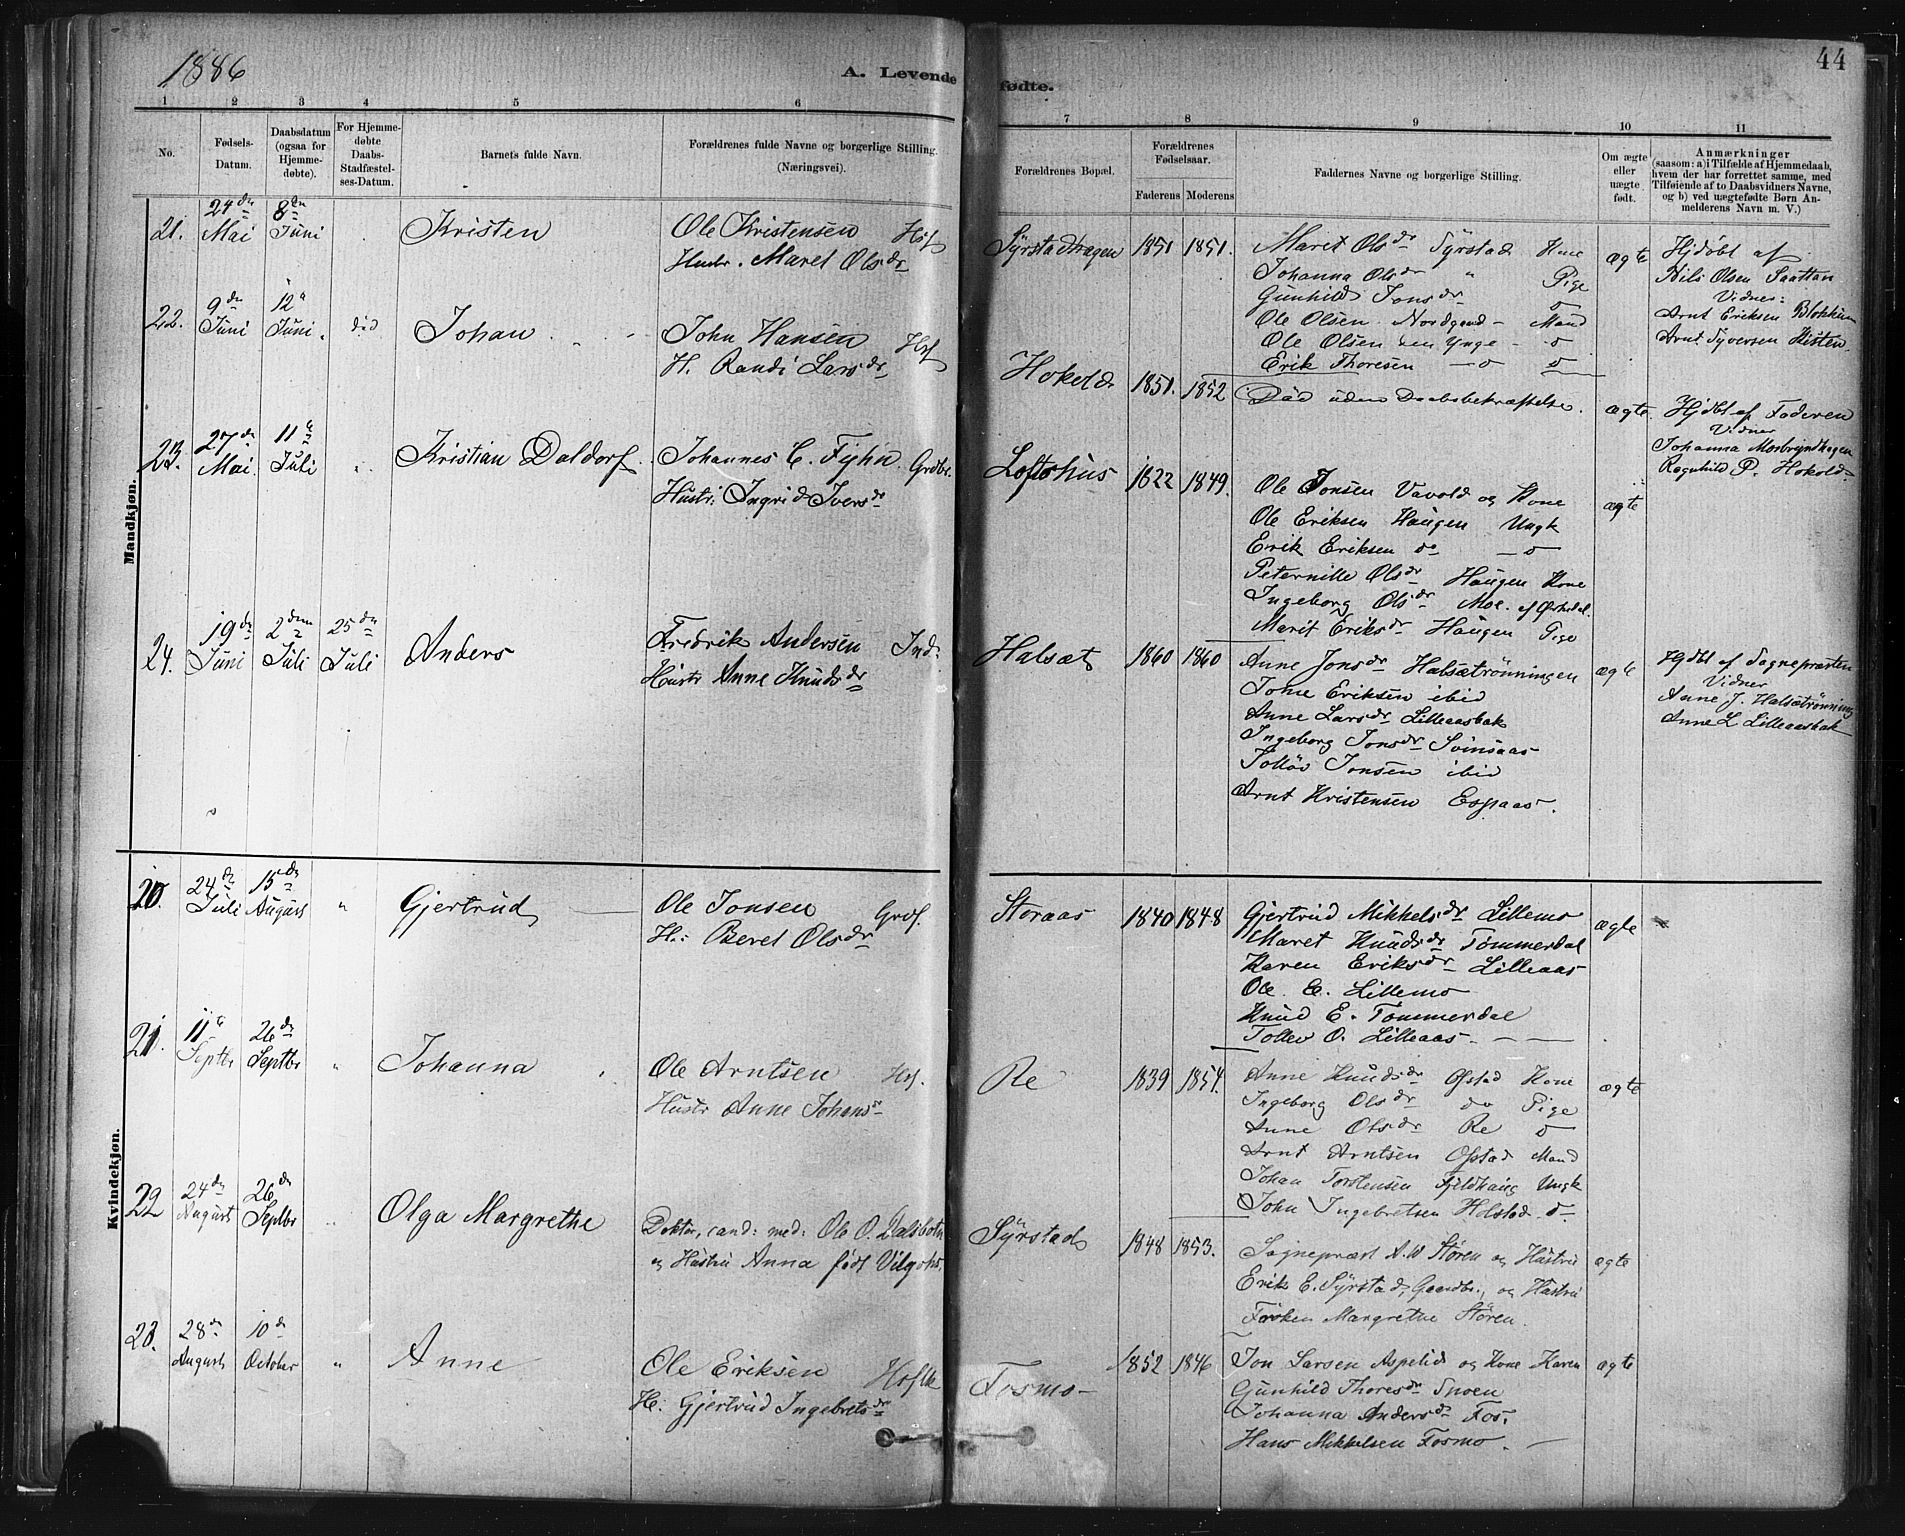 1886
A. Levende fødte.
44
1 2 3 4 5 6 7 8 9 10 11
No.
Fødsels-Datum.
Daabsdatum (ogsaa for Hjemme-døbte).
For Hjemme-døbte Daabs-Stadfæstel-ses-Datum.
Barnets fulde Navn.
Forældrenes fulde Navne og borgerlige Stilling. (Næringsvei).
Forældrenes Bopæl.
Forældrenes Fødselsaar.
Faderens Moderens
Faddernes Navne og borgerlige Stilling.
Om ægte eller uægte født.
Anmærkninger
(saasom: a) i Tilfælde af Hjemmedaab, hvem der har forrettet samme, med Tilføiende af to Daabsvidners Navne, og b) ved uægtefødte Børn An-melderens Navn m. V.)
Mandkjøn.
21. 24de Mai 8de Juni Kristen
Ole Kristensen Hsf
Hustr. Maret Olsdr
Syrstadhagen 1851 1851.
Maret Olsdr Syrstad Kone
Johanna Olsdr " Pige
Gunhild Jonsdr o
Ole Olsen Nordgard - Mand
Ole Olsen den Ynge - o
Erik Thoresen - o o
ægte
Hjdøbt af
Nils Olsen Saattan
Vidner:
Arnt Eriksen Blokkum
Arnt Syversen Kisten
22. 9de Juni 12te Juni død Johan
John Hansen Hsf
H. Randi Larsdr
Hokold 1851. 1852
Død uden Daabsbekræftelse. ægte.
Hjdbt af Faderen
Vidner
Johanna Mosbryndhagen
Ragnhild P. Hokold
23. 27de Mai 11te Juli " Kristian Daldorf
Johannes C. Fyhn. Grdbr.
Hustr: Ingrid Iversdr
Loftshus 1822 1849.
Ole Jonsen Vavold og Kone
Ole Eriksen Haugen Ungk
Erik Eriksen do - o
Peternille Olsdr Haugen Kone
Ingeborg Olsdr Moe. af Orkedal
Marit Eriksdr Haugen Pige
ægte
24. 19de Juni 2den Juli 25de Juli Anders
Fredrik Andersen Ind:
Hustr Anne Knudsdr
Halsæt 1860 1860
Anne Jonsdr Halsætrønningen
John Eriksen ibid
Anne Larsdr Lilleaasbak
Ingeborg Jonsdr Svinsaas
Tollöv Jonsen ibid
Arnt Kristensen Espaas.
ægte
Hjdbt af Sognepræsten
Vidner
Anne J. Halsætrönning
Anne L Lilleaasbak
Kvindekjøn.
20. 24de Juli 15de August " Gjertrud
Ole Jonsen Grdf.
H: Beret Olsdr
Storaas 1840 1848
Gjertrud Mikkelsdr Lillemo
Maret Knudsdr Tømmerdal
Karen Eriksdr Lilleaas
Ole E. Lillemo
Knud E. Tømmerdal
Tollev O. Lilleaas.
ægte
21. 11te Septbr 26de Septbr " Johanna
Ole Arntsen Hsf.
Hustr Anne Johans
Re 1839 1854.
Anne Knudsdr Ofstad Kone
Ingeborg Olsdr do Pige
Anne Olsdr Re o
Arnt Arntsen Ofstad Mand
Johan Torstensen Fjeldhaug Ungk
John Ingebretsen Holstad o
ægte
22 24de August 26de Septbr " Olga Margrethe
Doktor, cand: med: Ole O. Dalsbotn
og Hustru Anna født
Syrstad 1848 1853.
Sognepræst A. W Støren og Hustru
Erik E. Syrstad, Gaardbr., og Hustru
Frøken Margrethe Støren.
ægte
23. 28de August 10de October " Anne
Ole Eriksen
H: Gjertrud Ingebretsdr
Fosmo 1852 1846
Jon Larsen Aspelid og Kone Karen
Gunhild Thoresdr Snoen
Johanna Andersdr Fos.
Hans Mikkelsen Fosmo.
ægte